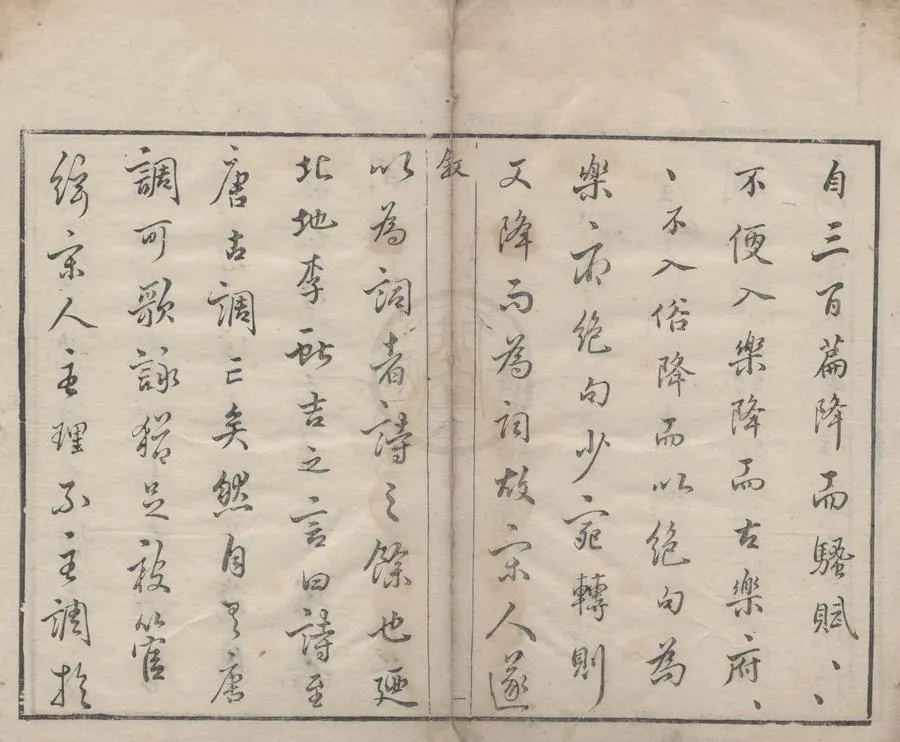 自三百篇降而騷賦、、
不便入樂降而古樂府、
、不入俗降而以絶句為
樂府絶句少宛轉則
又降而為詞故宋人遂
敘
一
以為詞者詩之餘也廼
北地李獻吉之言曰詩至
唐古調亡矣然自有唐
調可歌詠猶足被管
絃宋人主理不主調於